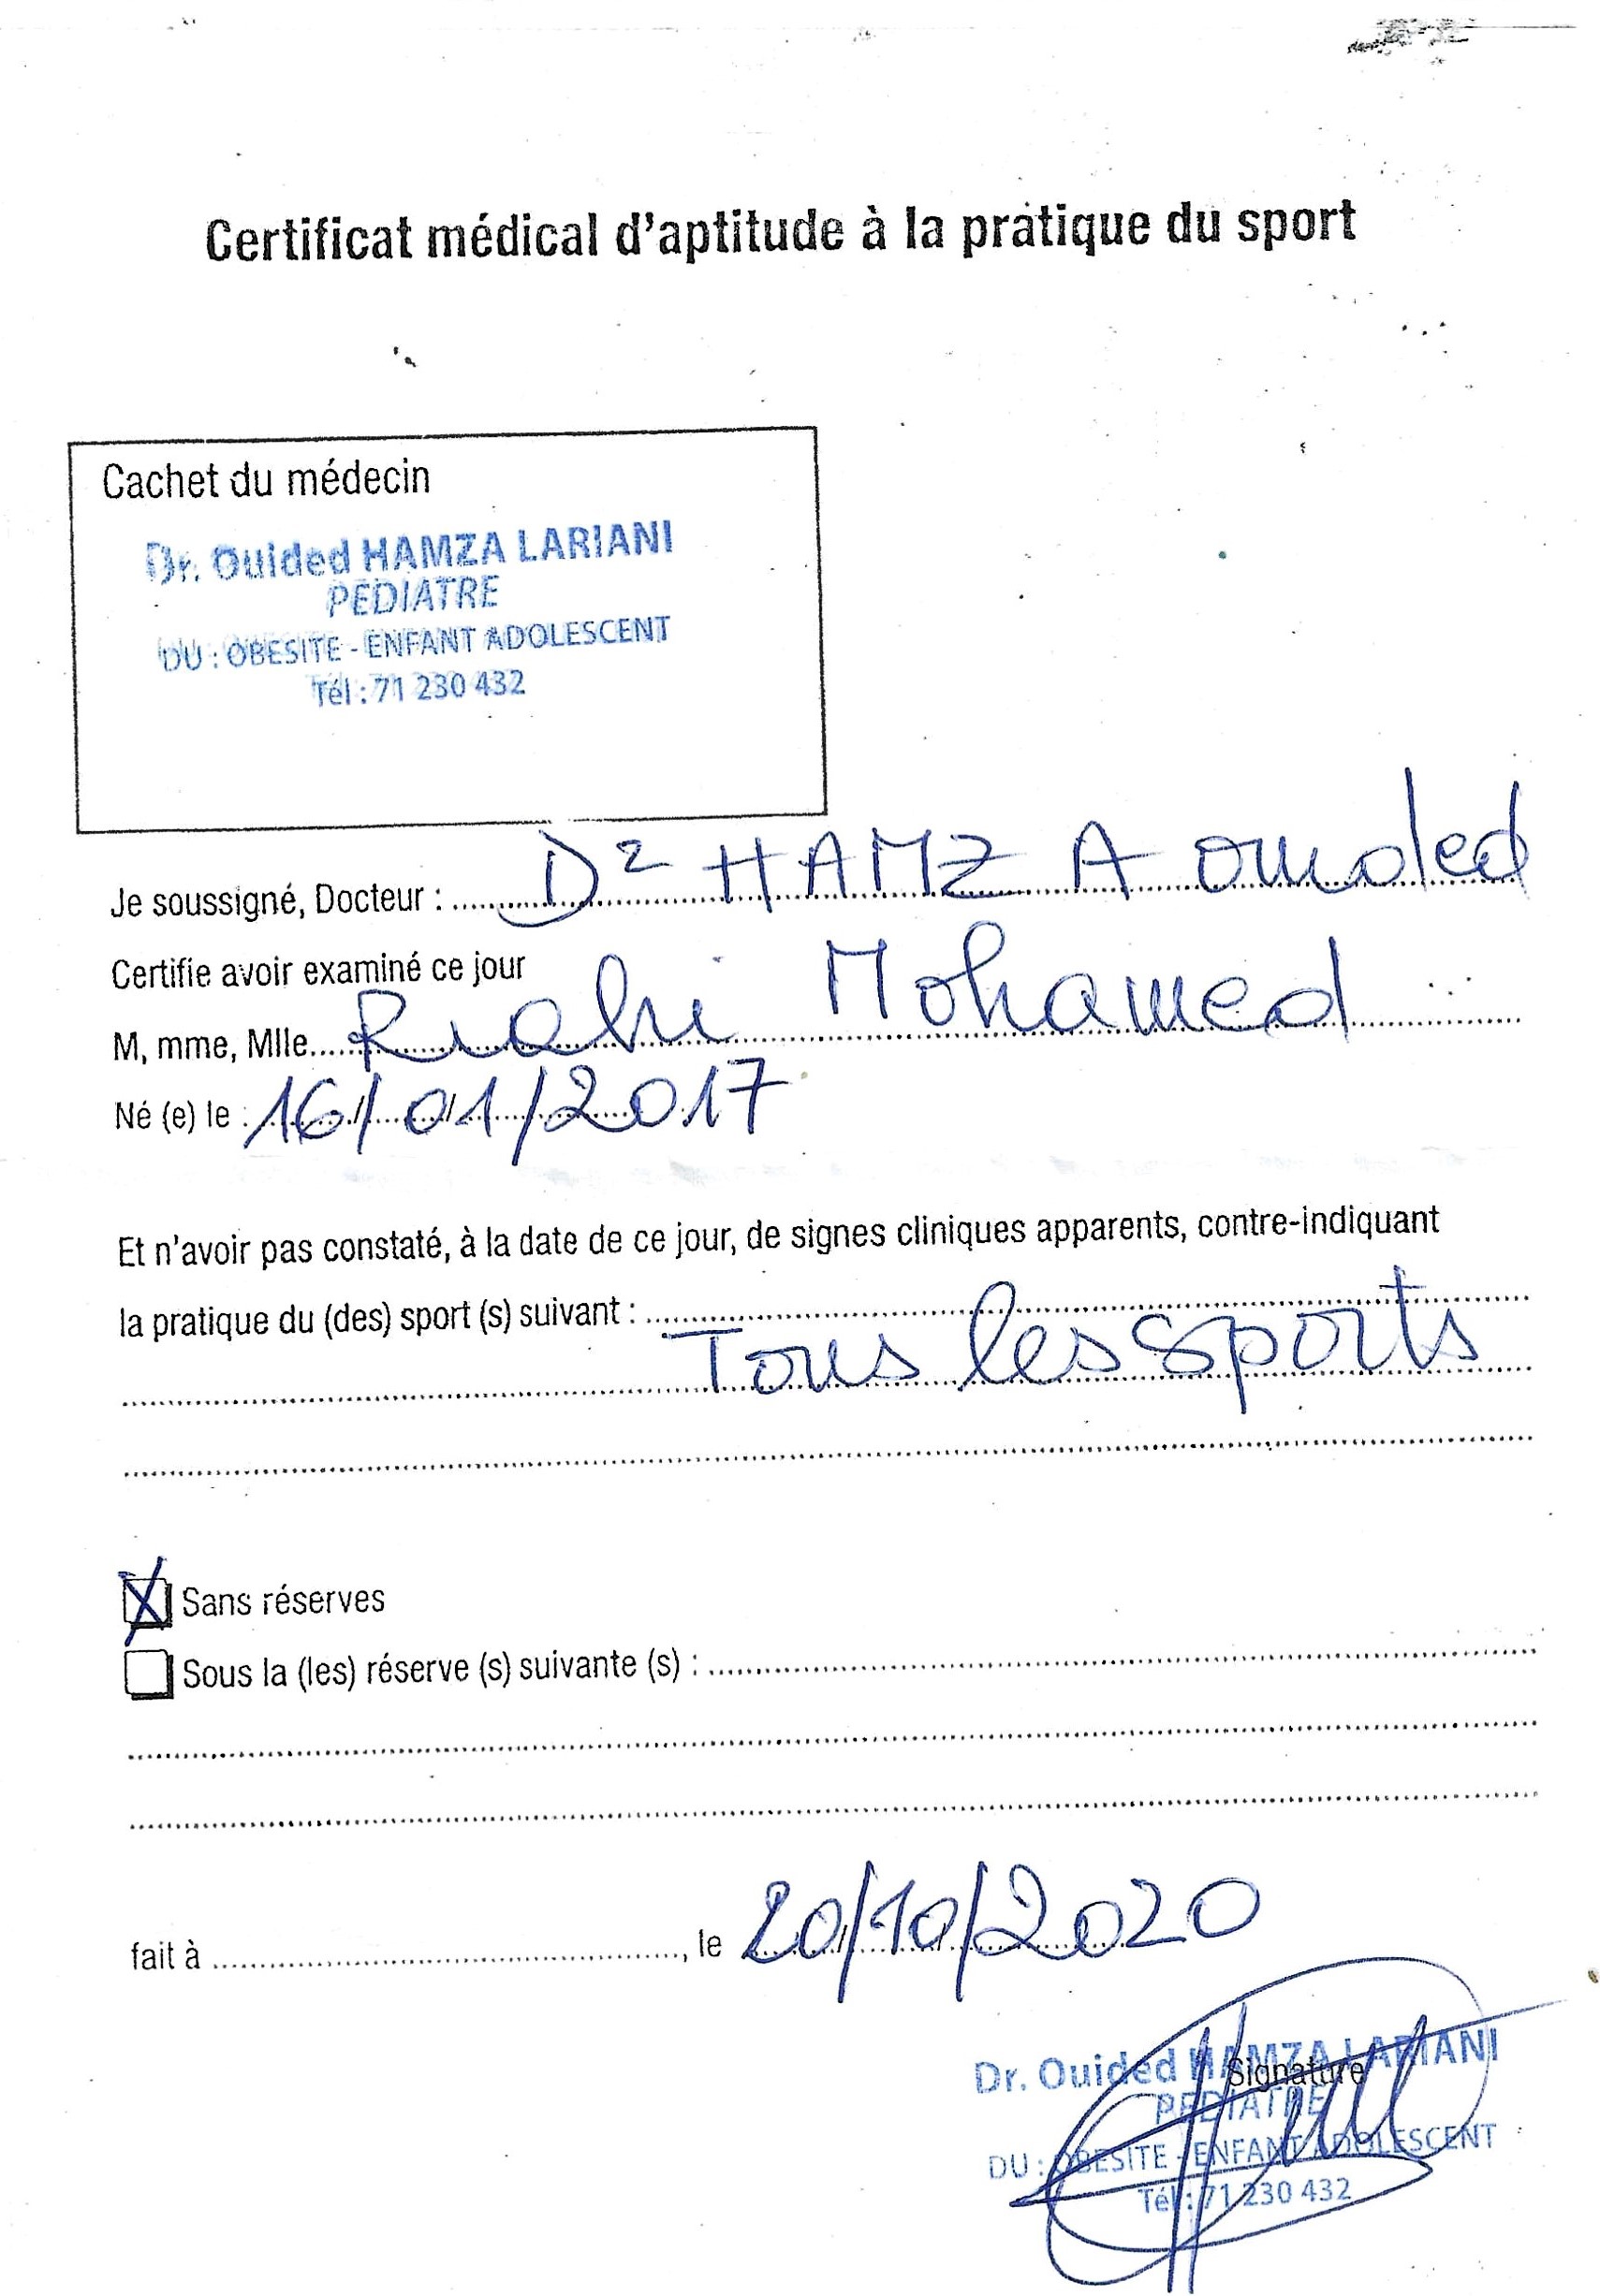 Certificat médical d'aptitude à la pratique du sport
Cachet du médecin
Dr. Ouided HAMZA LARIANI
PEDIATRE
DU : OBESITE - ENFANT ADOLESCENT
Tél : 71 230 432
Je soussigné, Docteur : Dr HAMZA Ouided
Certifie avoir examiné ce jour
M, mme, Mlle Riahi Mohamed
Né (e) le : 16/01/2017
Et n'avoir pas constaté, à la date de ce jour, de signes cliniques apparents, contre-indiquant
la pratique du (des) sport (s) suivant :
Tous les sports
X Sans réserves
Sous la (les) réserve (s) suivante (s) :
fait à , le 20/10/2020
Signature
Dr. Ouided HAMZA LARIANI
PEDIATRE
DU : OBESITE - ENFANT ADOLESCENT
Tél : 71 230 432